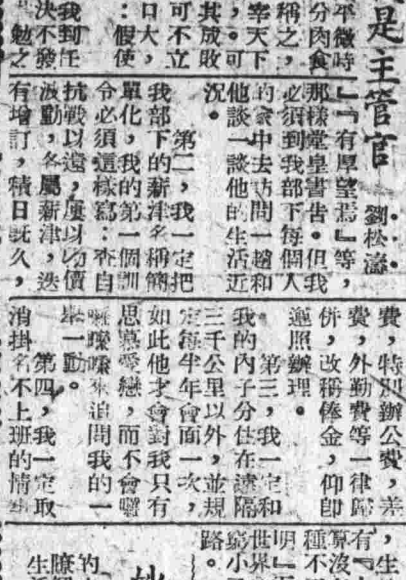 是主管官
劉松濤
平微時
分肉食
稱之，
宰天下
，。可
其成敗
可不立
口大，
：假使
我到任
決不發
勉之
』『有厚望焉』等，
那樣堂皇書告。但我
必須到我部下每個人
的家中去訪問一趟和
他談一談他的生活近
況。
第二，我一定把
我部下的薪津名稱簡
單化，我的第一個訓
令必須這樣寫：查自
抗戰以還，屢以物價
波動，各屬薪津，迭
有增訂，積日既久，
費，特別辦公費，差
費，外勤費等一律歸
併，改稱俸金，仰卽
遵照辦理。
第三，我一定和
我的內子分住在遠隔
三千公里以外，並規
定每半年會面一次，
如此他才會對我只有
思慕愛戀，而不會囉
囉嗦嗦來追問我的一
舉一動。
第四，我一定取
消掛名不上班的情
，生
有『
算沒
種不
明』
世界
窮小
路。
的
瞭
生活